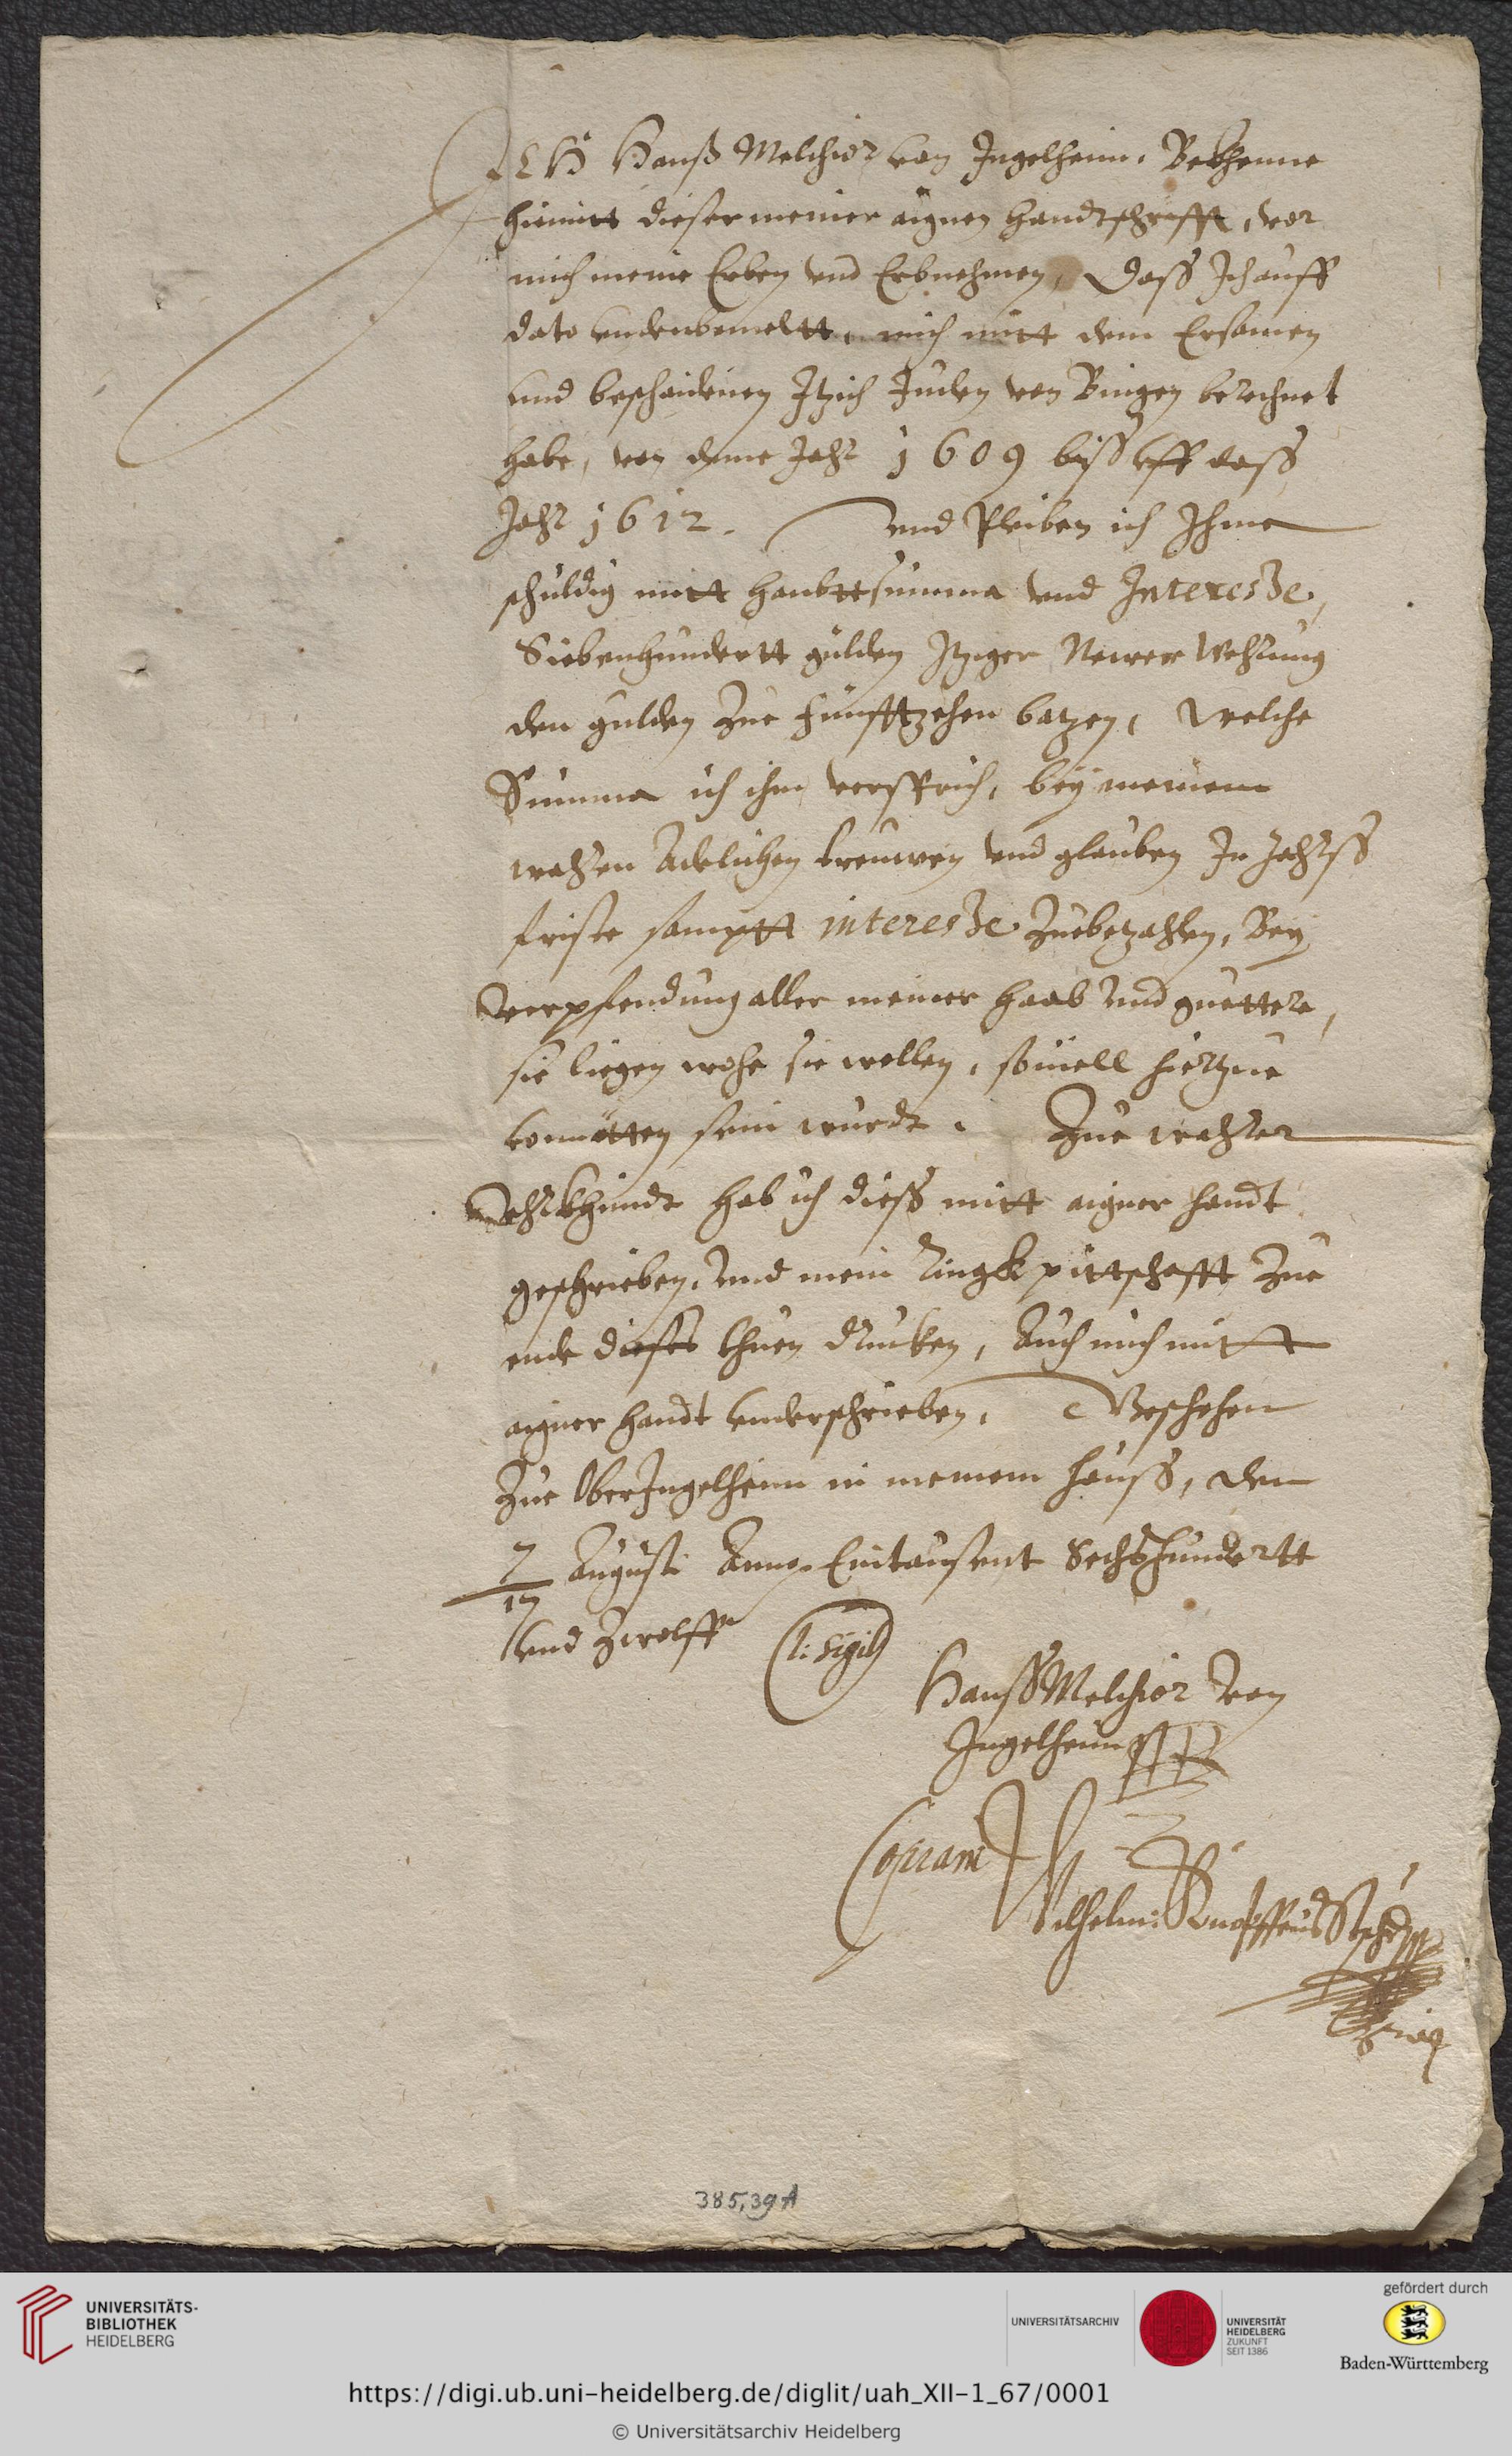 ICH Hanß Melchior von Ingelheim, Bekhenne
hiemitt dieser meiner aignen handtschrifft, vor
mich meine Erben vnd Erbnehmen, Dass Ich auff
dato vndenbemeltt, mich mitt dem Ersamen
vnd bescheidenen Itzich Juden von Bingen berechnet
habe, von deme Jahr 1609 biss vff dass
Jahr 1612. vnd Pleiben ich Ihme
schuldig mitt haubttsumma vnd Interesse,
Siebenhundertt gulden Itziger Newer Wehrung
den gulden Zue funfftzehen batzen, welche
Summa ich ihm versprich, bey meinem
wahren Adelichen treuwen vnd glauben In Jahrss
friste samptt interesse Zuebetzahlen, Bey
Verpfendung aller meiner haab vnd guetter,
sie liegen wohe sie wollen, souiell hiertzue
vonnötten sein wurdt. Zue wahrer
Vhrkhundt hab ich diess mitt aigner handt
geschrieben, vnd mein Ringk pittschafft Zue
ende dieses thuen drucken, Auch mich mitt
aigner handt vnderschrieben, Geschehen
Zue OberIngelheim in meinem hauss, den
7/17 Augusti Anno Eintausent Sechshundertt
vnd Zwolff (L: Sigil)
Hanss Melchior von
Ingelheim
Copiam
Wilhelm:
385,39 A
UNIVERSITÄTS-
BIBLIOTHEK
HEIDELBERG
UNIVERSITÄTSARCHIV
UNIVERSITÄT
HEIDELBERG
ZUKUNFT
SEIT 1386
gefördert durch
Baden-Württemberg
https://digi.ub.uni-heidelberg.de/diglit/uah_XII-1_67/0001
© Universitätsarchiv Heidelberg